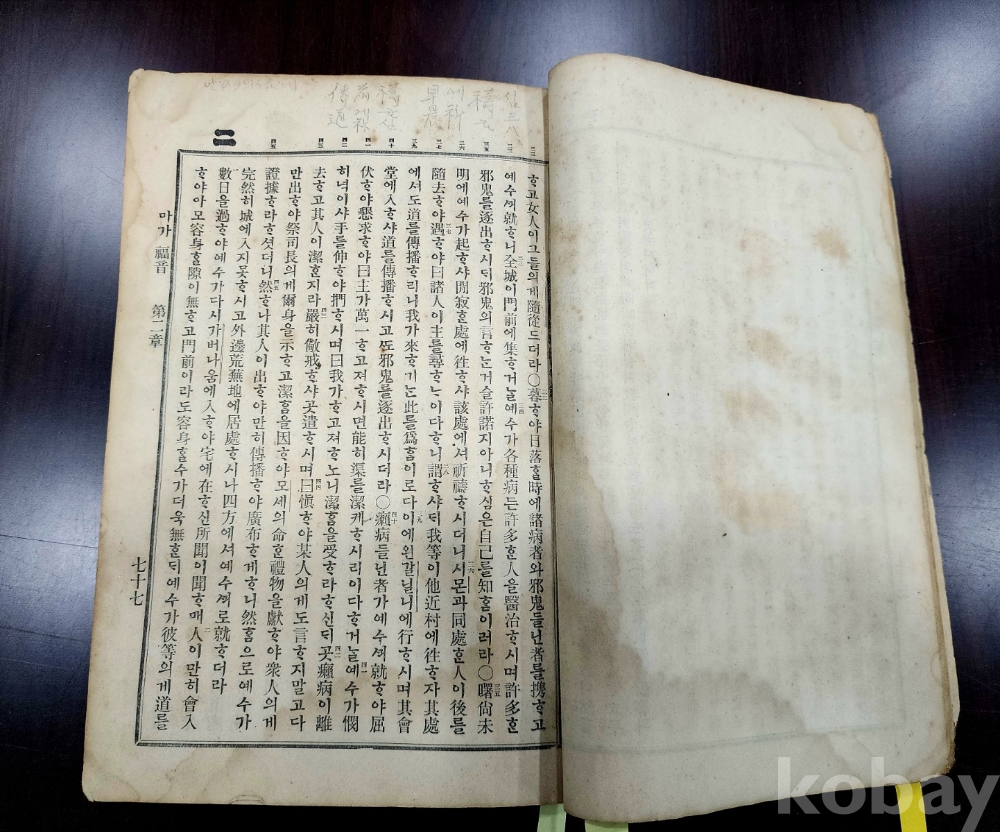 ᄒᆞ고女人이그들의게隨從드더라〇暮ᄒᆞ야日落ᄒᆞᆯ時에諸病者와邪鬼들닌者를携ᄒᆞ고
예수ᄭᅴ就ᄒᆞ니全城이門前에集ᄒᆞ거ᄂᆞᆯ예수가各種病든許多ᄒᆞᆫ人을醫治ᄒᆞ시며許多ᄒᆞᆫ
邪鬼를逐出ᄒᆞ시ᄃᆡ邪鬼의言ᄒᆞᄂᆞᆫ거슬許諾지아니ᄒᆞ심은自己를知ᄒᆞᆷ이러라〇曙尙未
明에예수가起ᄒᆞ샤閒寂ᄒᆞᆫ處에徃ᄒᆞ샤該處에셔祈禱ᄒᆞ시더니시몬과同處ᄒᆞᆫ人이後를
隨去ᄒᆞ야遇ᄒᆞ야曰諸人이主를尋ᄒᆞᄂᆞ이다ᄒᆞ니謂ᄒᆞ샤ᄃᆡ我等이他近村에徃ᄒᆞ자其處
에셔도道를傳播ᄒᆞ리니我가來ᄒᆞ기ᄂᆞᆫ此를爲ᄒᆞᆷ이로다이에왼갈닐니에行ᄒᆞ시며其會
堂에入ᄒᆞ샤道를傳播ᄒᆞ시고ᄯᅩ邪鬼를逐出ᄒᆞ시더라〇癩病들닌者가예수ᄭᅴ就ᄒᆞ야屈
伏ᄒᆞ야懇求ᄒᆞ야曰主가萬一ᄒᆞ고져ᄒᆞ시면能히渠를潔케ᄒᆞ시리이다ᄒᆞ거ᄂᆞᆯ예수가憫
히녁이샤手를伸ᄒᆞ야捫ᄒᆞ시며曰我가ᄒᆞ고져ᄒᆞ노니潔ᄒᆞᆷ을受ᄒᆞ라ᄒᆞ신ᄃᆡ곳癩病이離
去ᄒᆞ고其人이潔ᄒᆞᆫ지라嚴히儆戒ᄒᆞ샤곳遣ᄒᆞ시며曰愼ᄒᆞ야某人의게도言ᄒᆞ지말고다
만出ᄒᆞ야祭司長의게爾身을示ᄒᆞ고潔ᄒᆞᆷ을因ᄒᆞ야모세의命ᄒᆞᆫ禮物을獻ᄒᆞ야衆人의게
證據ᄒᆞ라ᄒᆞ셧더니然ᄒᆞ나其人이出ᄒᆞ야만히傳播ᄒᆞ야廣布ᄒᆞ게ᄒᆞ니然ᄒᆞᆷ으로예수가
完然히城에入지못ᄒᆞ시고外邊荒蕪地에居處ᄒᆞ시나四方에셔예수ᄭᅴ로就ᄒᆞ더라
二
數日을過ᄒᆞ야예수가다시가버나움에入ᄒᆞ야宅에在ᄒᆞ신所聞이聞ᄒᆞ매人이만히會入
ᄒᆞ야아모容身ᄒᆞᆯ隙이無ᄒᆞ고門前이라도容身ᄒᆞᆯ수가더욱無ᄒᆞᆫᄃᆡ예수가彼等의게道를
마가福音 第二章 七十七
kobay